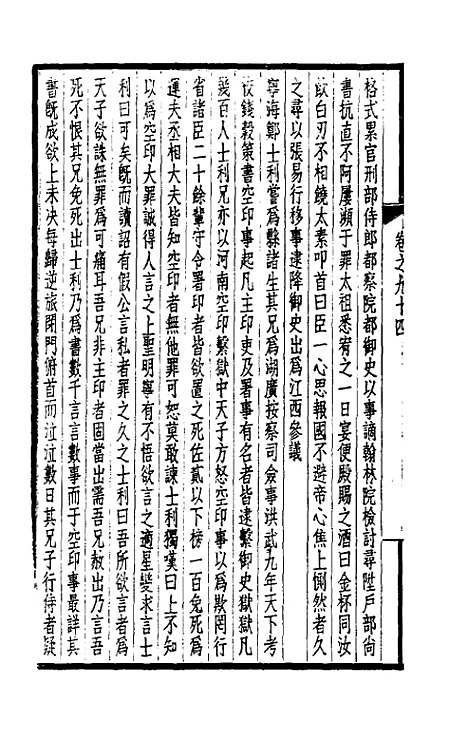 格式累官刑部侍郎都察院都御史以事謫翰林院檢討尋陞戶部尚
書抗直不阿屢瀕于罪太祖悉宥之一日宴便殿賜之酒曰金杯同汝
飲白刃不相饒太素叩首曰臣一心思報國不避帝心焦上惻然者久
之尋以張易行移事逮降御史出為江西參議
寧海鄭士利嘗為縣諸生其兄為湖廣按察司僉事洪武九年天下考
校錢穀策書空印事起凡主印吏及署事有名者皆逮繫御史獄獄凡
幾百人士利兄亦以河南空印繫獄中天子方怒空印事以為欺罔行
省諸臣二十餘輩守令署印者皆欲置之死佐貳以下榜一百免死為
運夫丞相大夫皆知空印者無他罪可恕莫敢諫士利獨嘆曰上不知
以為空印大罪誠得人言之上聖明寧有不悟欲言之適星變求言士
利曰可矣既而讀詔有假公言私者罪之久之士利曰吾所欲言者為
天子欲誅無罪為可痛耳吾兄非主印者固當出需吾兄赦出乃言吾
死不恨其兄免死出士利乃為書數千言言數事而于空印事最詳其
書既成欲上未決每歸逆旅閉門俯首而泣泣數日其兄子行侍者疑
卷之九十四